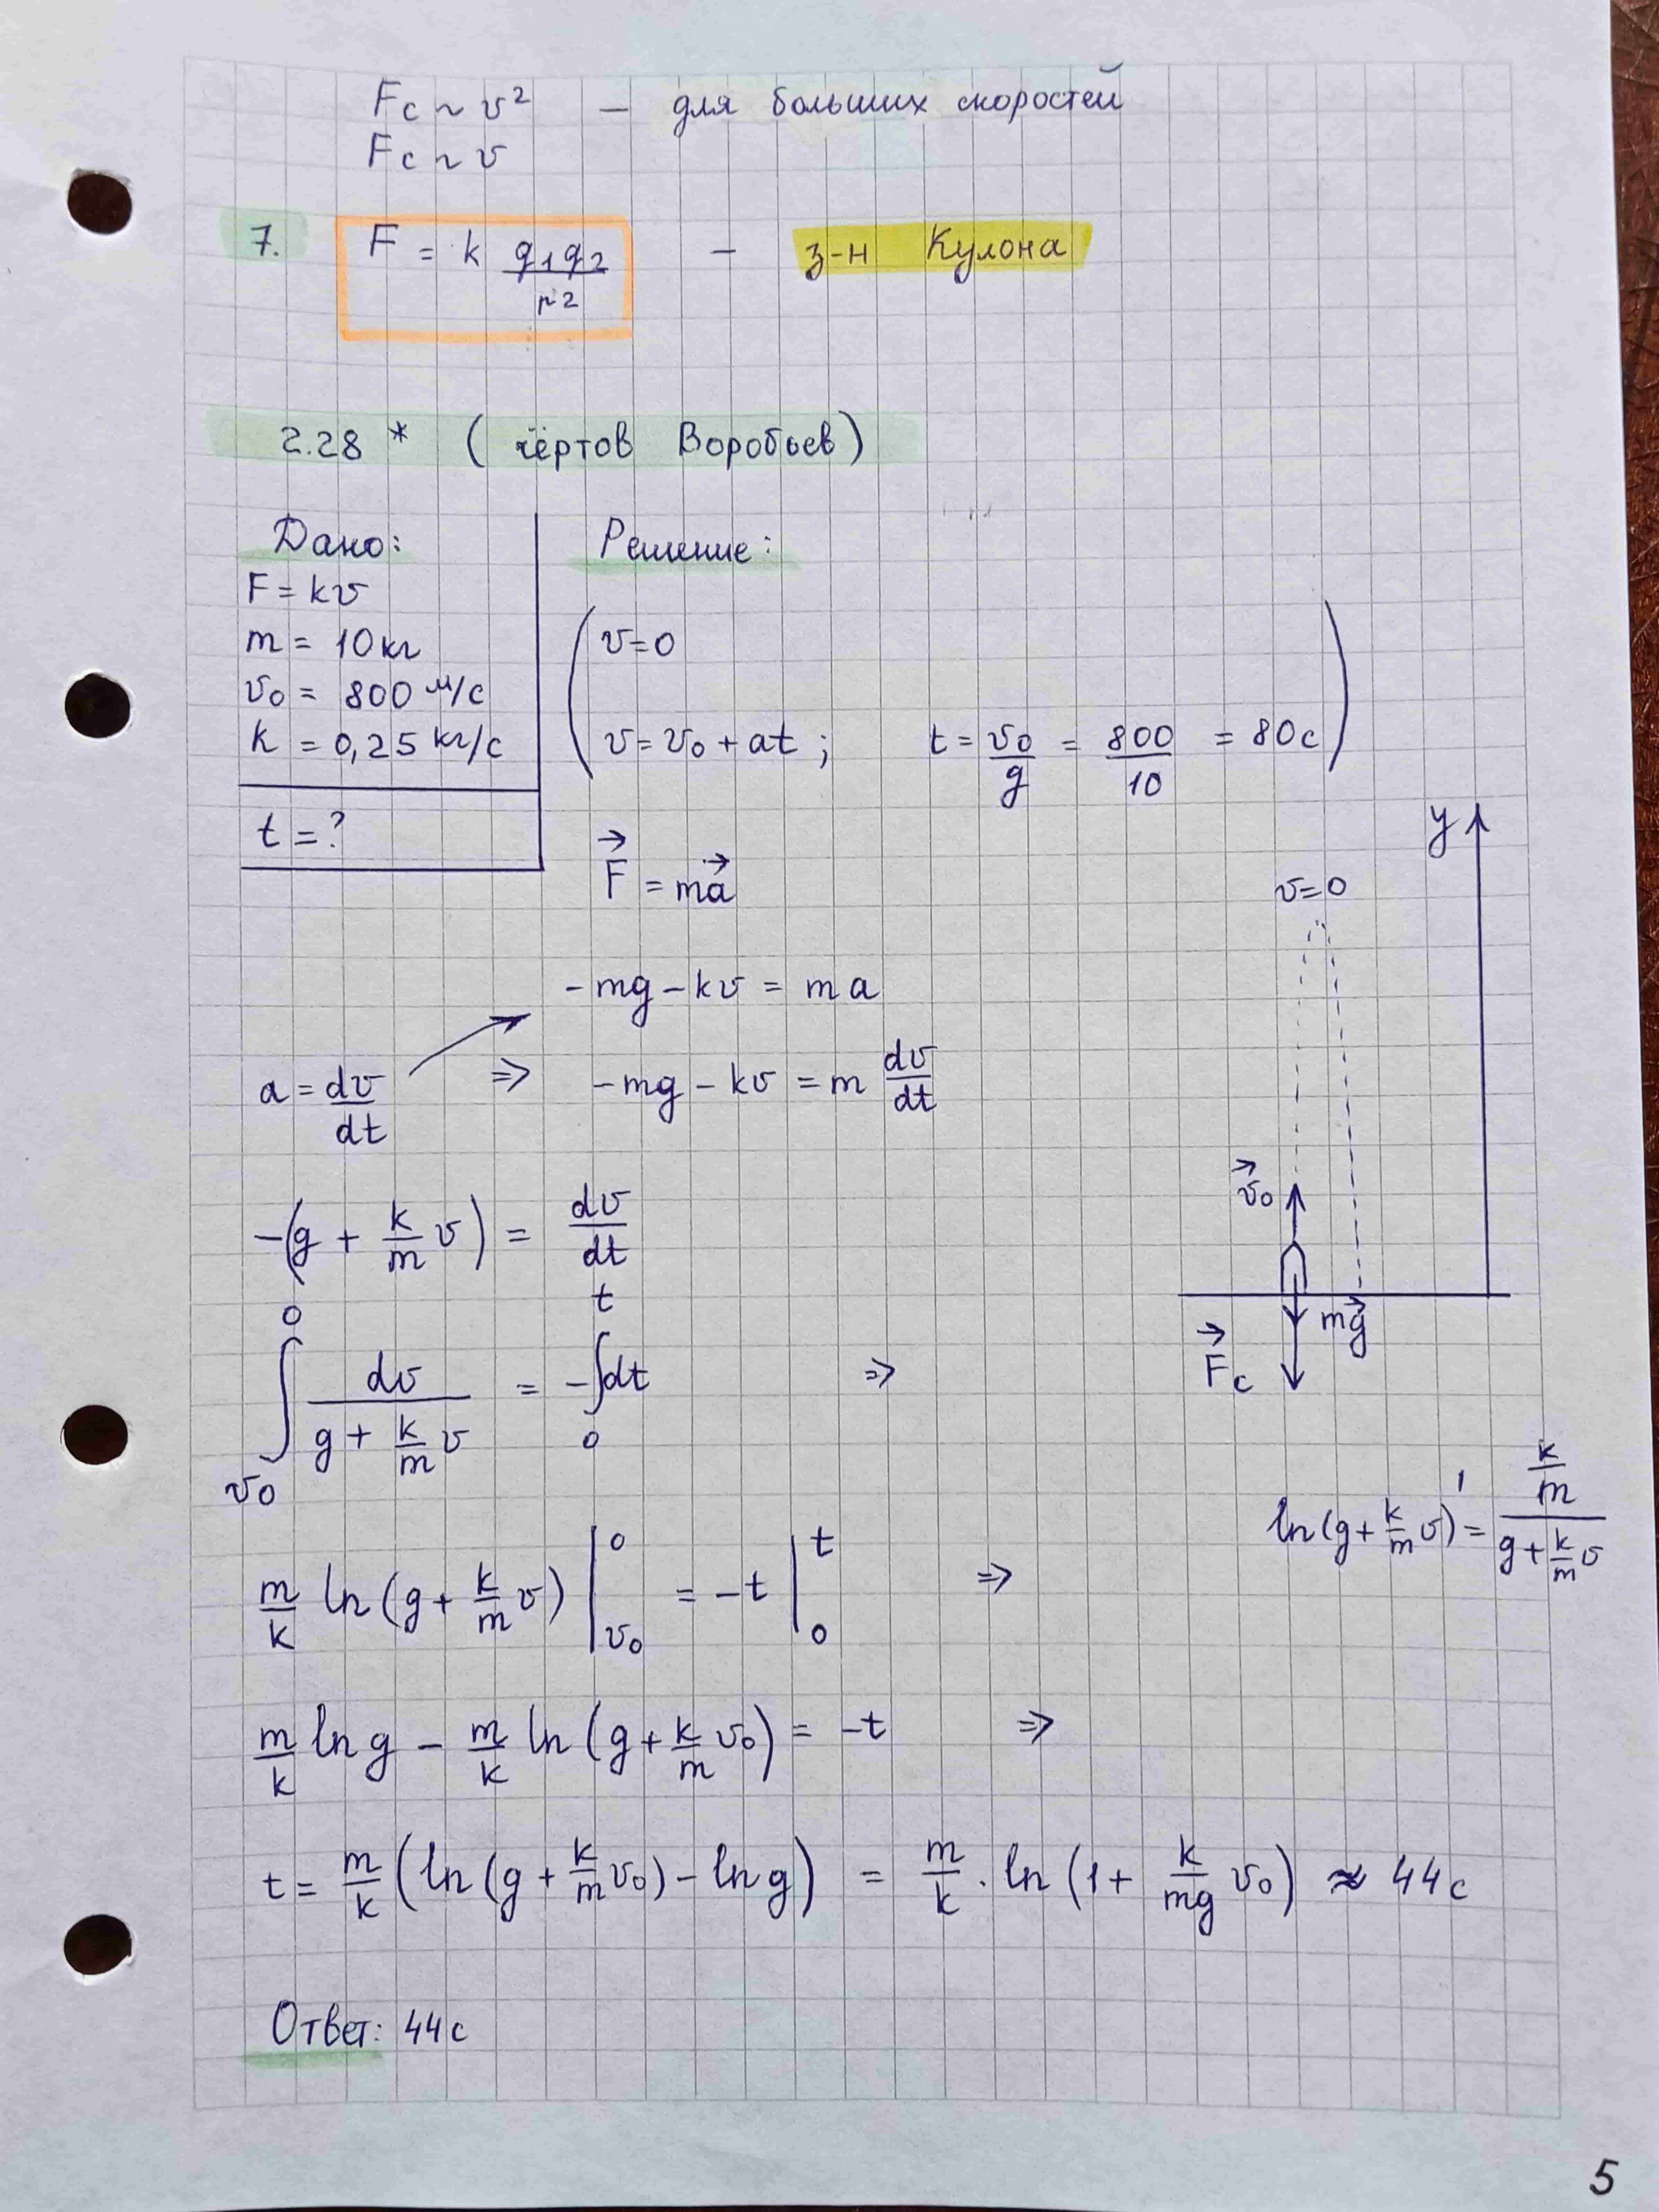 Fc ~ v²  –  для больших скоростей
Fc ~ v
7. F = k q₁q₂/r²  –  з-н Кулона
2.28 * (Чёртов Воробьев)
Дано:
F = kv
m = 10 кг
v₀ = 800 м/с
k = 0,25 кг/с
t = ?
Решение:
(v = 0
v = v₀ + at ;  t = v₀/g = 800/10 = 80 с)
F⃗ = ma⃗
-mg - kv = ma
a = dv/dt ⇒ -mg - kv = m dv/dt
-(g + k/m v) = dv/dt
∫_{v₀}^{0} dv/(g + k/m v) = -∫_{0}^{t} dt ⇒
m/k ln(g + k/m v) |_{v₀}^{0} = -t |_{0}^{t} ⇒
m/k ln g - m/k ln(g + k/m v₀) = -t ⇒
t = m/k (ln(g + k/m v₀) - ln g) = m/k · ln(1 + k/mg v₀) ≈ 44 с
Ответ: 44 с
y
v = 0
v⃗₀
mg⃗
F⃗c
ln(g + k/m v)' = (k/m)/(g + k/m v)
5